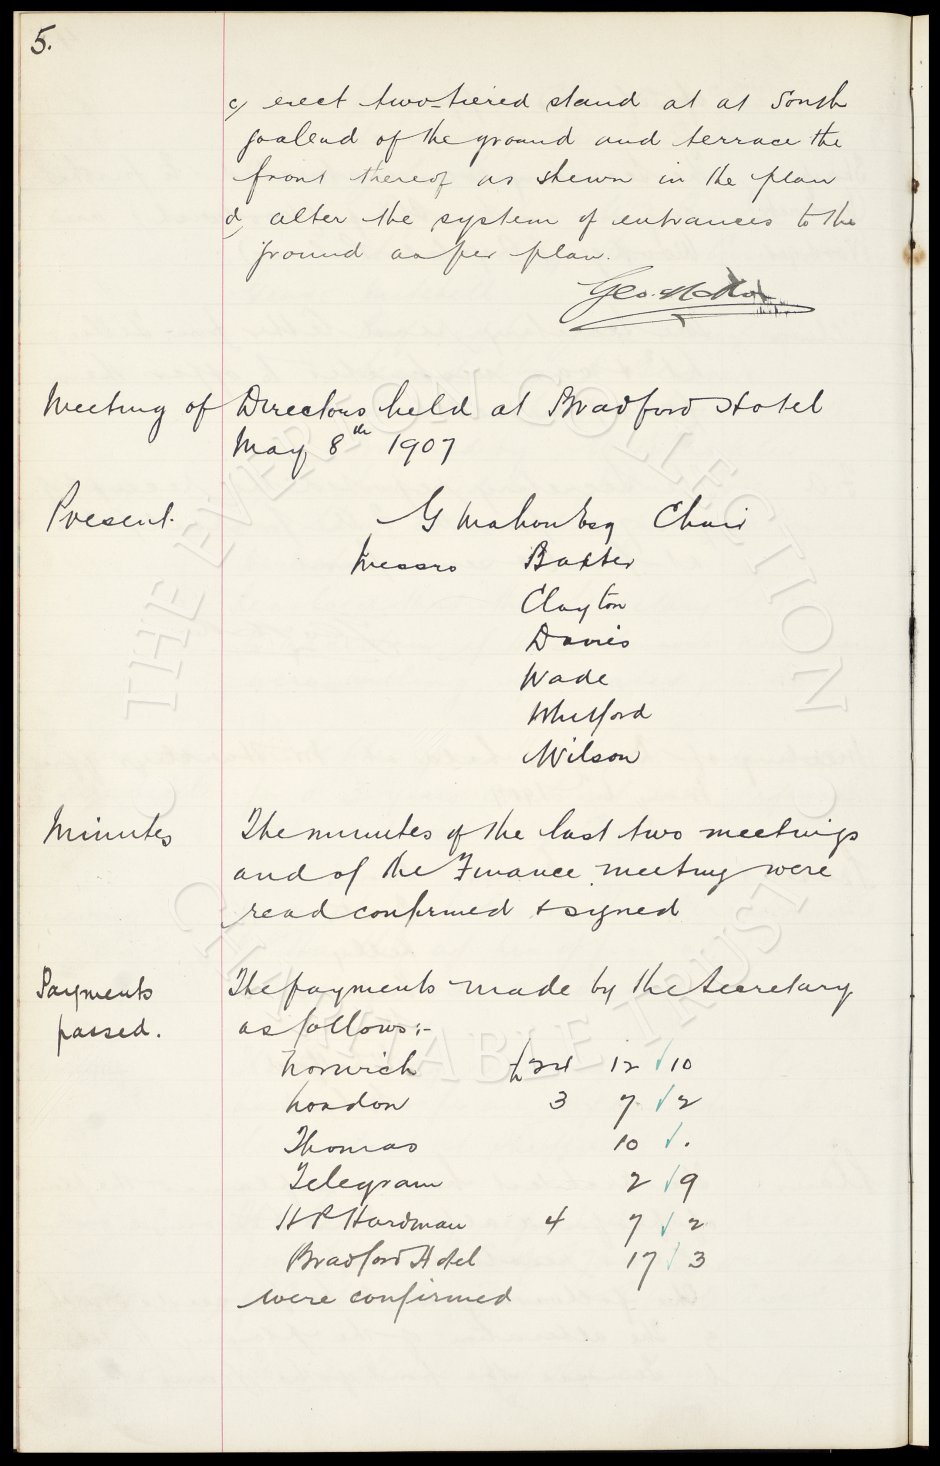 5.
c) erect two-tiered stand at at South
goalend of the ground and terrace the
front thereof as shewn in the plan
d) alter the system of entrances to the
ground as per plan.
Geo. Mahon
Meeting of Directors held at Bradford Hotel
May 8th 1907
Present. G Mahon Esq Chair
Messrs Baxter
Clayton
Davies
Wade
Whitford
Wilson
Minutes The minutes of the last two meetings
and of the Finance meeting were
read confirmed & signed
Payments The payments made by the Secretary
passed. as follows:-
Norwich £24 12 10
London 3 7 2
Thomas 10 .
Telegram 2 9
H P Hardman 4 7 2
Bradford Hotel 17 3
were confirmed
THE EVERTON COLLECTION
CHARITABLE TRUST